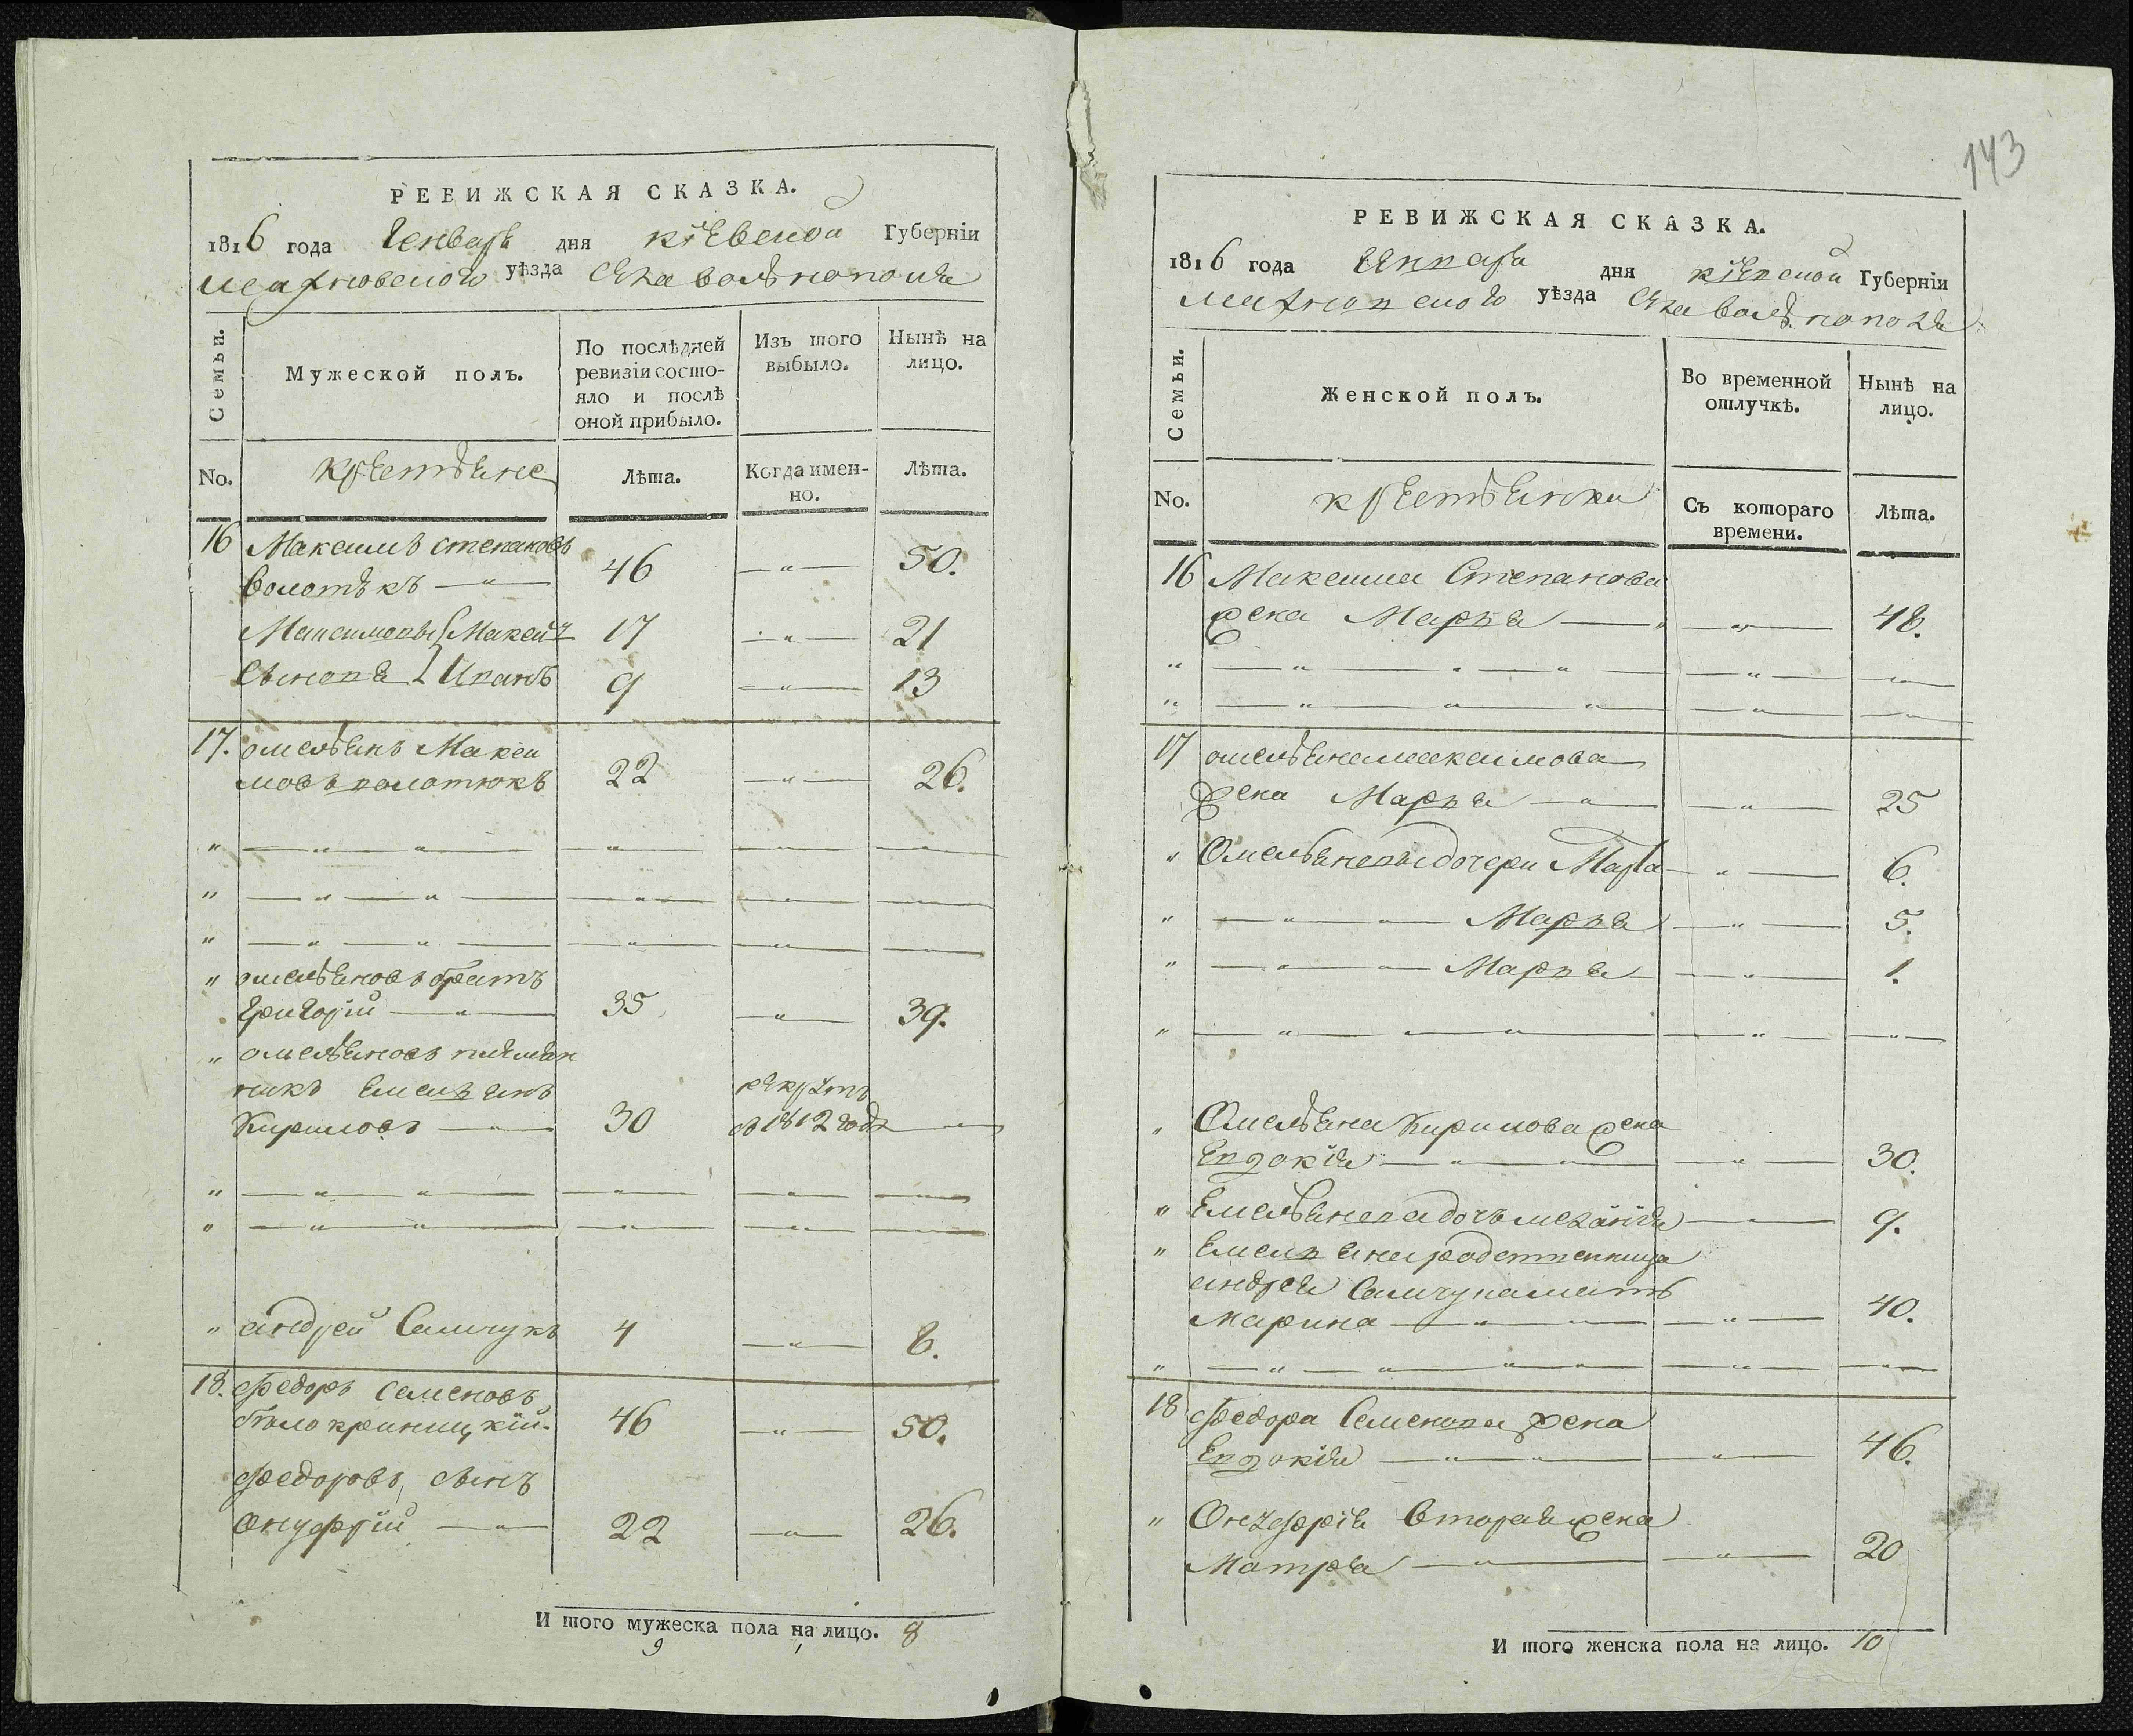 РЕВИЖСКАЯ СКАЗКА.
1816 года Генваря дня Кіевской Губерніи
Махновского уѣзда Села
Семьи.
Мужеской полъ.
По послѣдней ревизіи состояло и послѣ оной прибыло.
Изъ того выбыло.
Нынѣ на лицо.
No.
Лѣта.
Когда именно.
Лѣта.
16 Максимъ Степановъ
46 — " — 50.
Максимовы Максимъ 17 — " — 21
Сынове Иванъ 9 — " — 13
17. Омельянъ Макси
мовъ Волотюкъ 22 — " — 26.
" Омельяновъ братъ
Григорій — " — 35 — " — 39.
" Омельяновъ племян
никъ Емельянъ рекрутъ
Кириловъ — " — 30 в 1812 годѣ — " —
" Андрей Самчукъ 4 — " — 8.
18. Федоръ Семеновъ
Білокриницкій. 46 — " — 50.
Федоровъ, сынъ
Онуфрій — " — 22 — " — 26.
И того мужеска пола на лицо. 8
9
143
РЕВИЖСКАЯ СКАЗКА.
1816 года Генваря дня Кіевской Губерніи
Махновского уѣзда Села
Семьи.
Женской полъ.
Во временной отлучкѣ.
Нынѣ на лицо.
No.
Съ котораго времени.
Лѣта.
16 Максима Степанова
жена Марья — " — " — 48.
17 Омельяна Максимова
жена Марья — " — " — 25
" Омельяновы дочери Марья — " — 6.
" — " — Марья — " — 5.
" — " — Марья — " — 1.
" Омельяна Кирилова жена
Евдокія — " — " — 30.
" Емельянова дочь Меланія — " — 9.
" Емельяна родственница
Андрея Самчука мать
Марина — " — " — 40.
18 Федора Семенова жена
Евдокія — " — " — 46.
" Онуфрія вторая жена
Матрія — " — " — 20
И того женска пола на лицо. 10